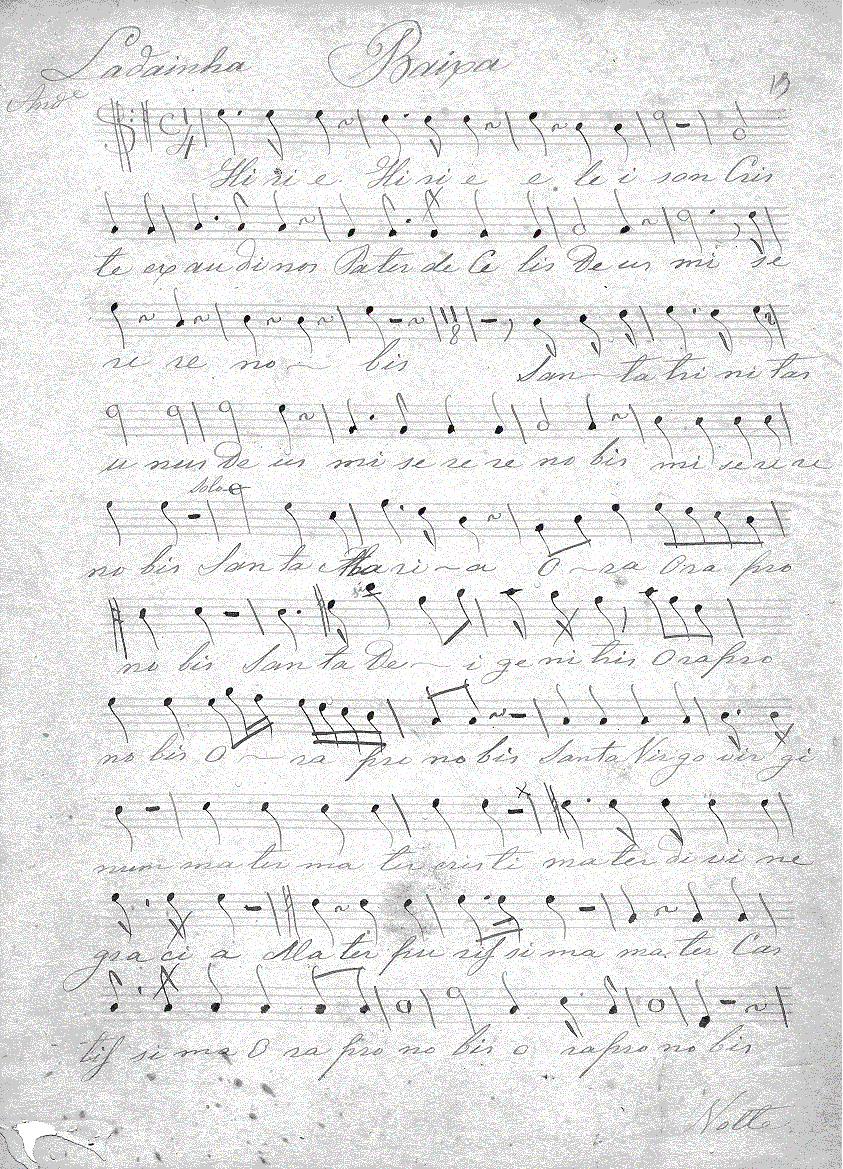 Ladainha Baixa
And.e 13
C 4
Hi ri e Hi ri e e le i son Cris
te ex au di nos Pater de Ce lis De us mi se
re re no bis San ta tri ni tas
u nus De us mi se re re no bis mi se re re
solo
no bis San ta Ma ri a O ra Ora pro
no bis San ta De i ge ni tris Ora pro
no bis O ra pro no bis Santa Virgo vir gi
num ma ter ma ter cristi ma ter di vi ne
gra ci a Ma ter pu ris si ma ma. ter Cas
tis si ma O ra pro no bis o ra pro no bis
Volte